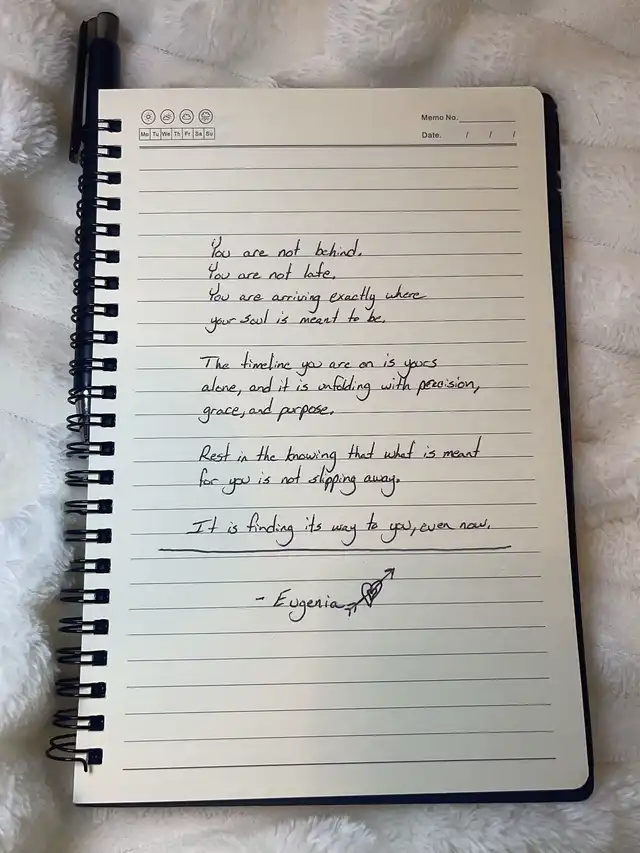 Memo No.
Mo Tu We Th Fr Sa Su
Date. / / /
You are not behind.
You are not late.
You are arriving exactly where
your soul is meant to be.
The timeline you are on is yours
alone, and it is unfolding with precision,
grace, and purpose.
Rest in the knowing that what is meant
for you is not slipping away.
It is finding its way to you, even now.
- Eugenia